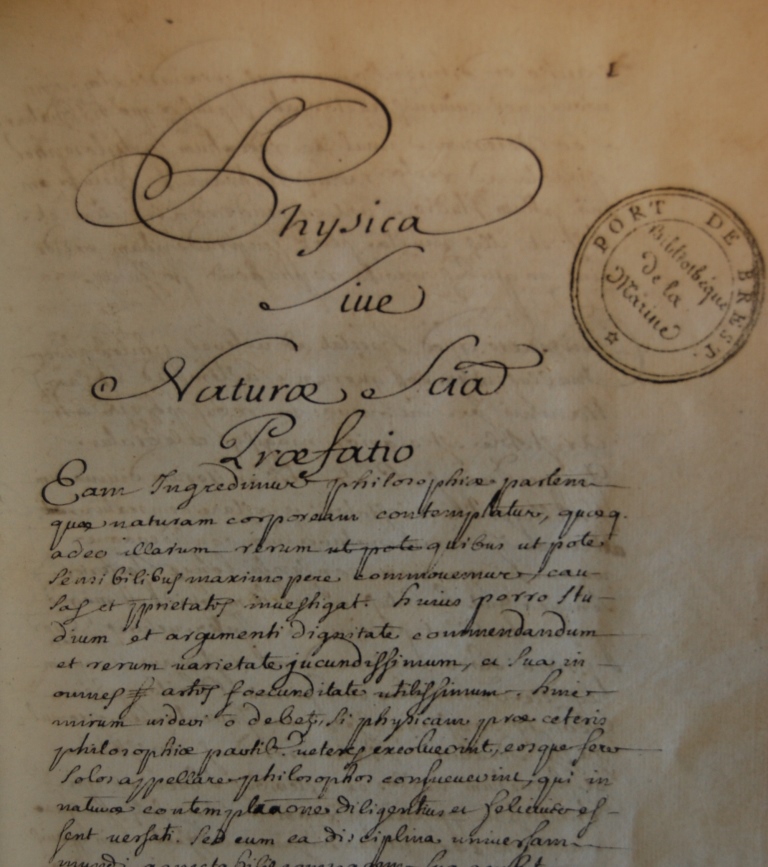 1
Physica
Siue
Naturæ Scīa
Præfatio
PORT DE BREST
Bibliothèque
de la
Marine
Eam Ingredimur philosophiæ partem
quæ naturam corpoream contemplatur, quæq.
adeo illarum rerum ut pote quibus ut pote
sensibilibus maximopere commouemur, cau-
sas et pprietates inuestigat. huius porro stu-
dium et argumenti dignitate commendandum
et rerum uarietate jucundissimum, et sua in
omnes artes foecunditate utilissimum. hinc
mirum uideri o debet, si physicam præ ceteris
philosophiæ ueteres excoluerint, eosque fere
solos appellare philosophos consueuerint, qui in
naturæ contemplaone diligentius et felicius es-
sent uersati. Sed cum ea disciplina uniuersam
mundi